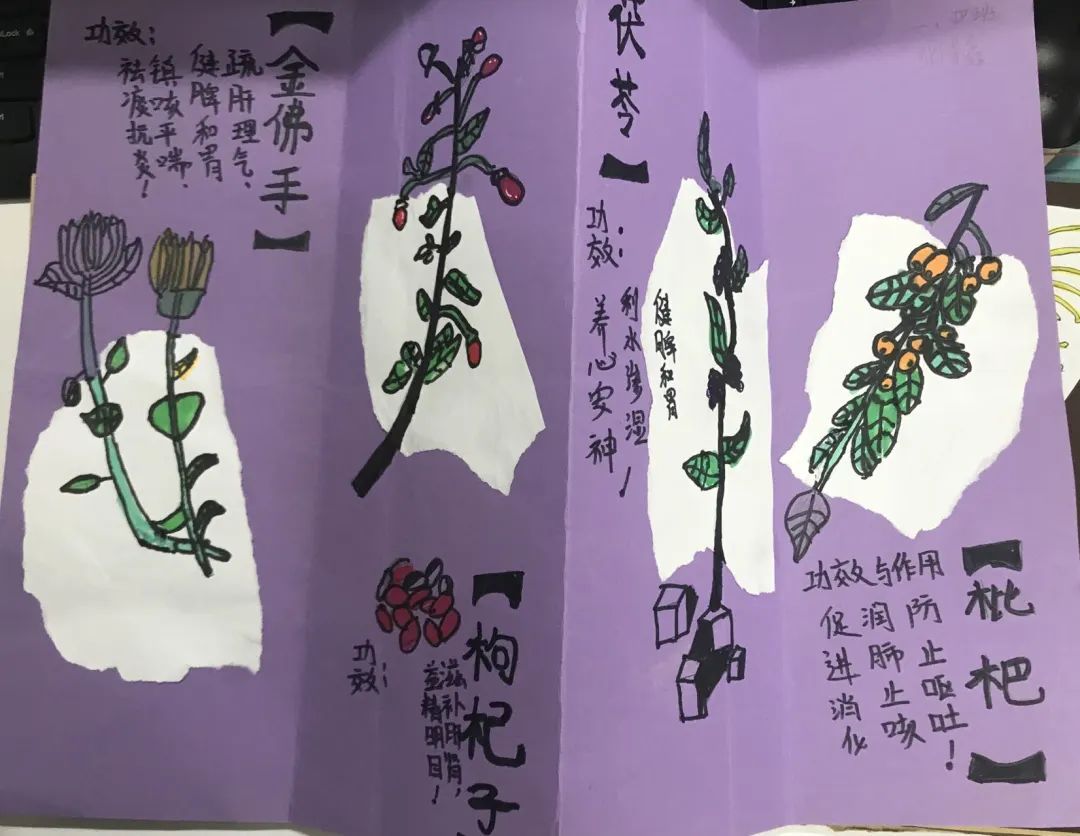 【金佛手】
功效：
疏肝理气、
健脾和胃
镇咳平喘、
祛痰抗炎！
【枸杞子
功效：
滋补肝肾，
益精明目！
茯苓】
功效：
健脾和胃
利水渗湿！
养心安神
【枇杷】
功效与作用
防止呕吐！
润肺止咳
促进消化
Lock